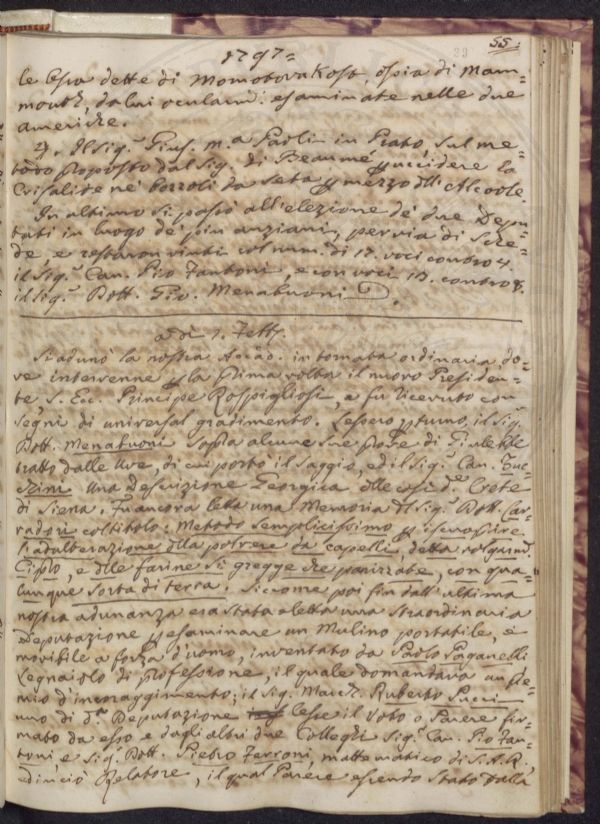 1797=
55.
le Ossa dette di Momotovu Kost, ossia di Mam=
mouth, da lui ocularm. esaminate nelle due
americhe.
Il Sig. Gius. M.a Paoli in Prato, sul me=
todo proposto dal Sig. di Beaumé p uccidere la
Crisalide ne' bozzoli da seta p mezzo dll' Alcoole.
In ultimo si passò all'elezione de' due Depu=
tati in luogo de' più anziani, per via di Sche=
de e restaron vinti col num. di 17. voci contro 4.
il Sig. Can. Pio Fantoni, e con voci 13. contro 8.
il Sig. Dott. Gio. Menabuoni
a dì 7. Sett.
Si adunò la nostra Accad. in tornata ordinaria, do=
ve intervenne p la prima volta il nuovo Presiden=
te S. Ecc. Principe Rospigliosi, e fu ricevuto con
segni di universal gradimento. Lessero p turno, il Sig.
Dott. Menabuoni sopra alcune sue prove di
tratto dalle Uve, di cui portò il saggio, ed il Sig. Can. Zuc=
chini Una Descrizione Georgica dlle così d.e Crete
di Siena. Fu ancora letta una Memoria dl Sig. Dott. Car=
radori col titolo: Metodo semplicissimo p riconoscere
l'adulterazione dlla polvere da capelli, detta volgarm.
Cipro, e dlle farine sì gregge che panizzabe, con qua=
lunque sorta di terra. Siccome poi fin dall'ultima
nostra adunanza era stata eletta una straordinaria
Deputazione p esaminare un Mulino portabile, e
movibile a forza d'uomo, inventato da Paolo Paganelli
Legnaiolo di professione, il quale domandava un pre=
mio d'incoraggimento; il Sig. March. Ruberto Pucci
uno di d.a Deputazione lesse il Voto o Parere fir=
mato da esso e dagli altri due Colleghi Sig. Can. Pio Fan=
toni e Sig. Dott. Pietro Ferroni, mattematico di S.A.R.
ed inciò Relatore, il qual Parere essendo stato dalla